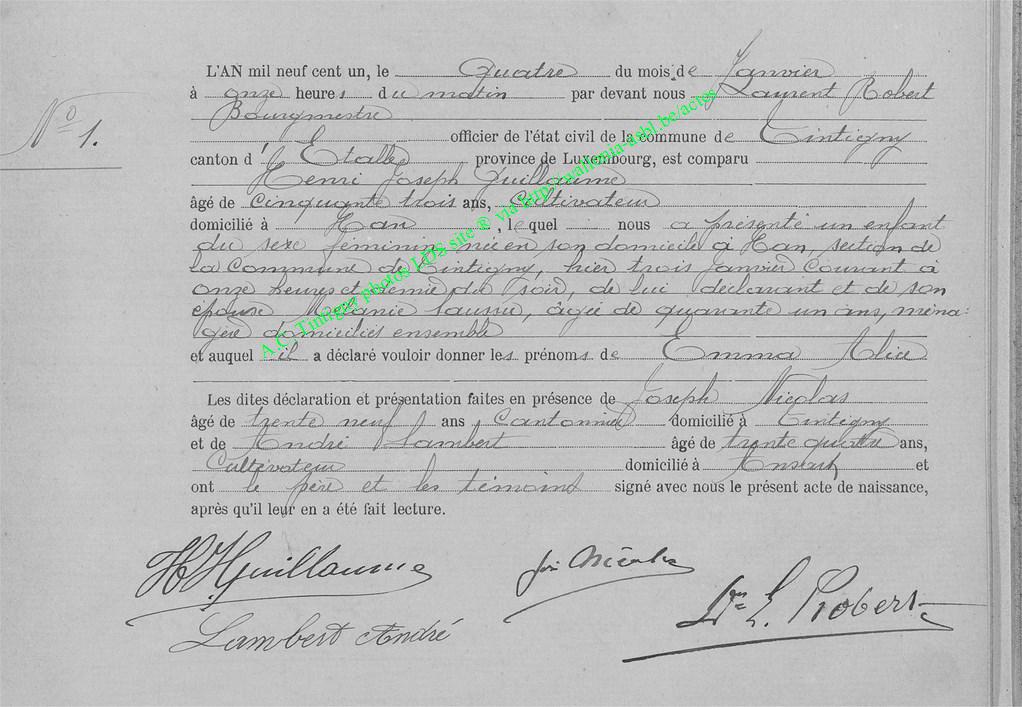 L'AN mil neuf cent un, le Quatre du mois de Janvier
à onze heures du matin par devant nous Laurent Robert
Bourgmestre
No 1.
officier de l'état civil de la commune de Tintigny
canton d' Etalle province de Luxembourg, est comparu
Henri Joseph Guillaume
âgé de cinquante trois ans, Cultivateur
domicilié à Han, lequel nous a présenté un enfant
du sexe féminin, née en son domicile à Han, section de
la Commune de Tintigny, hier trois Janvier courant à
onze heures et demie du soir, de lui déclarant et de son
épouse Mélanie, âgée de quarante un ans, ména-
gère domiciliés ensemble
et auquel il a déclaré vouloir donner les prénoms de Emma Alice
Les dites déclaration et présentation faites en présence de Joseph Nicolas
âgé de trente neuf ans Cantonnier domicilié à Tintigny
et de André Lambert âgé de trente quatre ans,
Cultivateur domicilié à Ansart et
ont le père et les témoins signé avec nous le présent acte de naissance,
après qu'il leur en a été fait lecture.
HJ Guillaume
Jos Nicolas
L. Robert
Lambert André
A.C. Tintigny photos LDS site ® via http://mallemia-asbl.be/actes